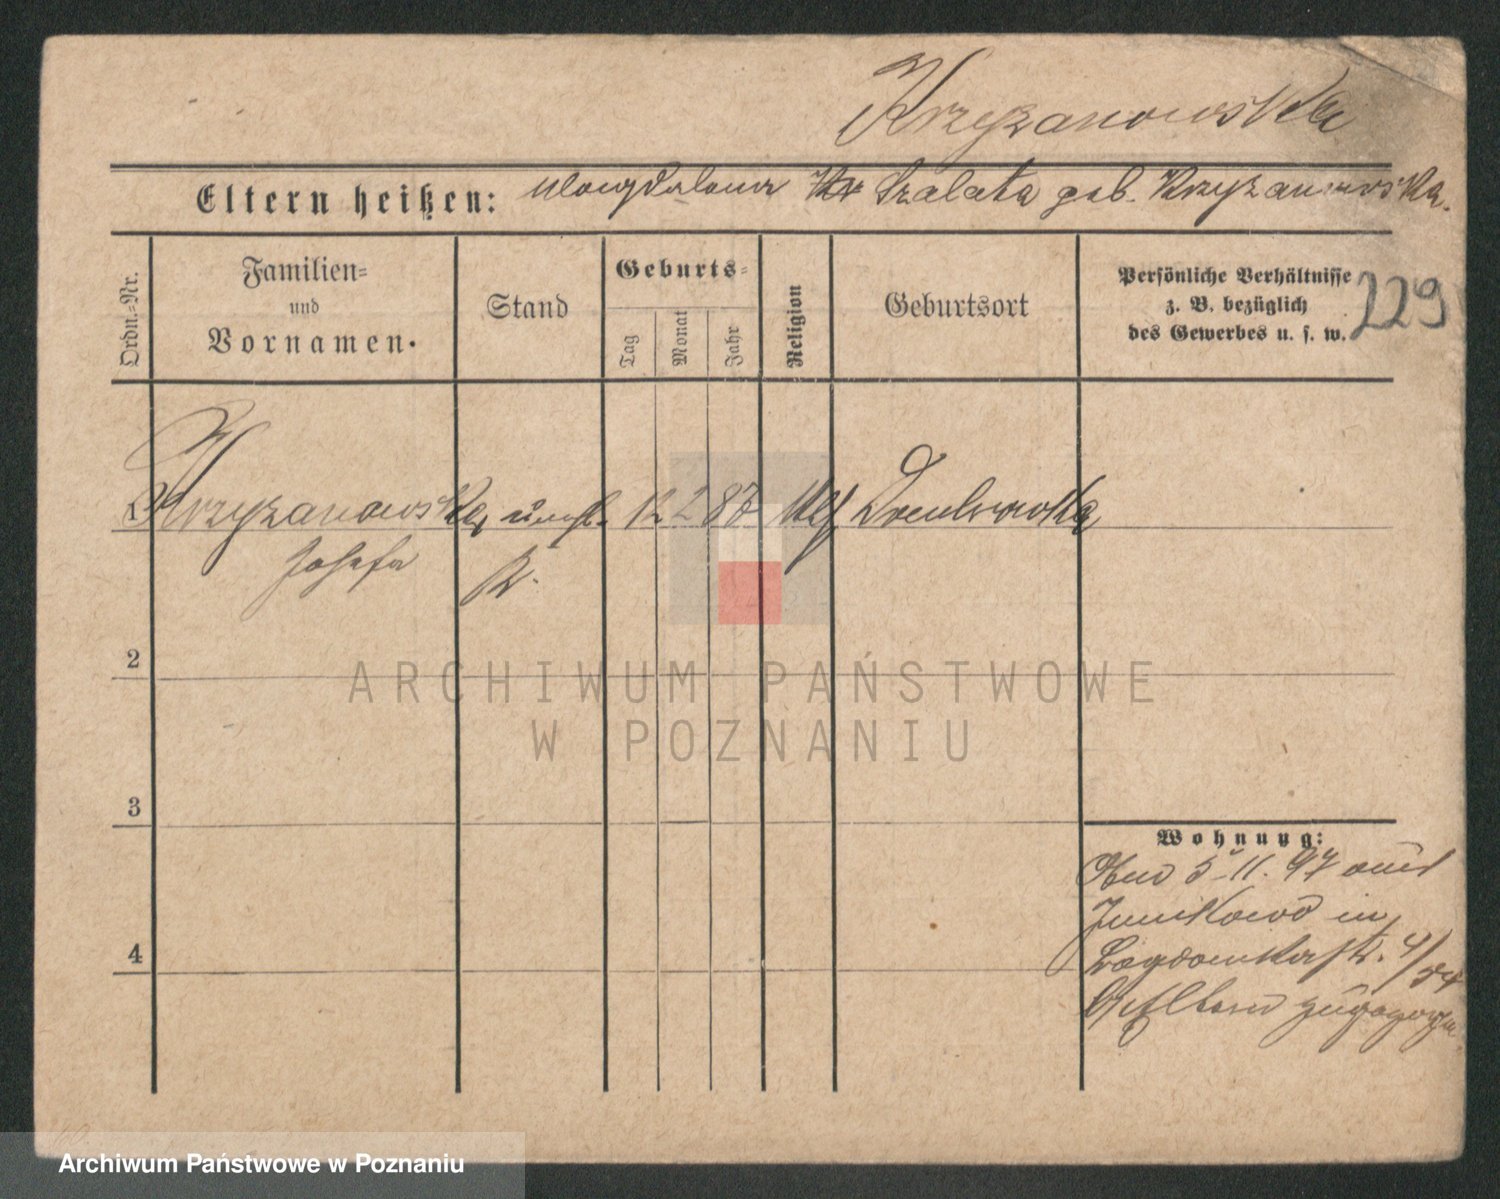 Krzyzanowska
Eltern heißen: Magdalena Szalata geb. Krzyzanowska.
Ordn.-Nr.
Familien-
und
Vornamen.
Stand
Geburts-
Tag
Monat
Jahr
Religion
Geburtsort
Persönliche Verhältnisse
z. B. bezüglich
des Gewerbes u. s. w.
229
1 Krzyzanowska, unehl. 12 2 87
Josefa K.
2
3
4
Wohnung:
5-11. 97 aus
Junikowo in
4/
zugezogen
ARCHIWUM PAŃSTWOWE
W POZNANIU
Archiwum Państwowe w Poznaniu